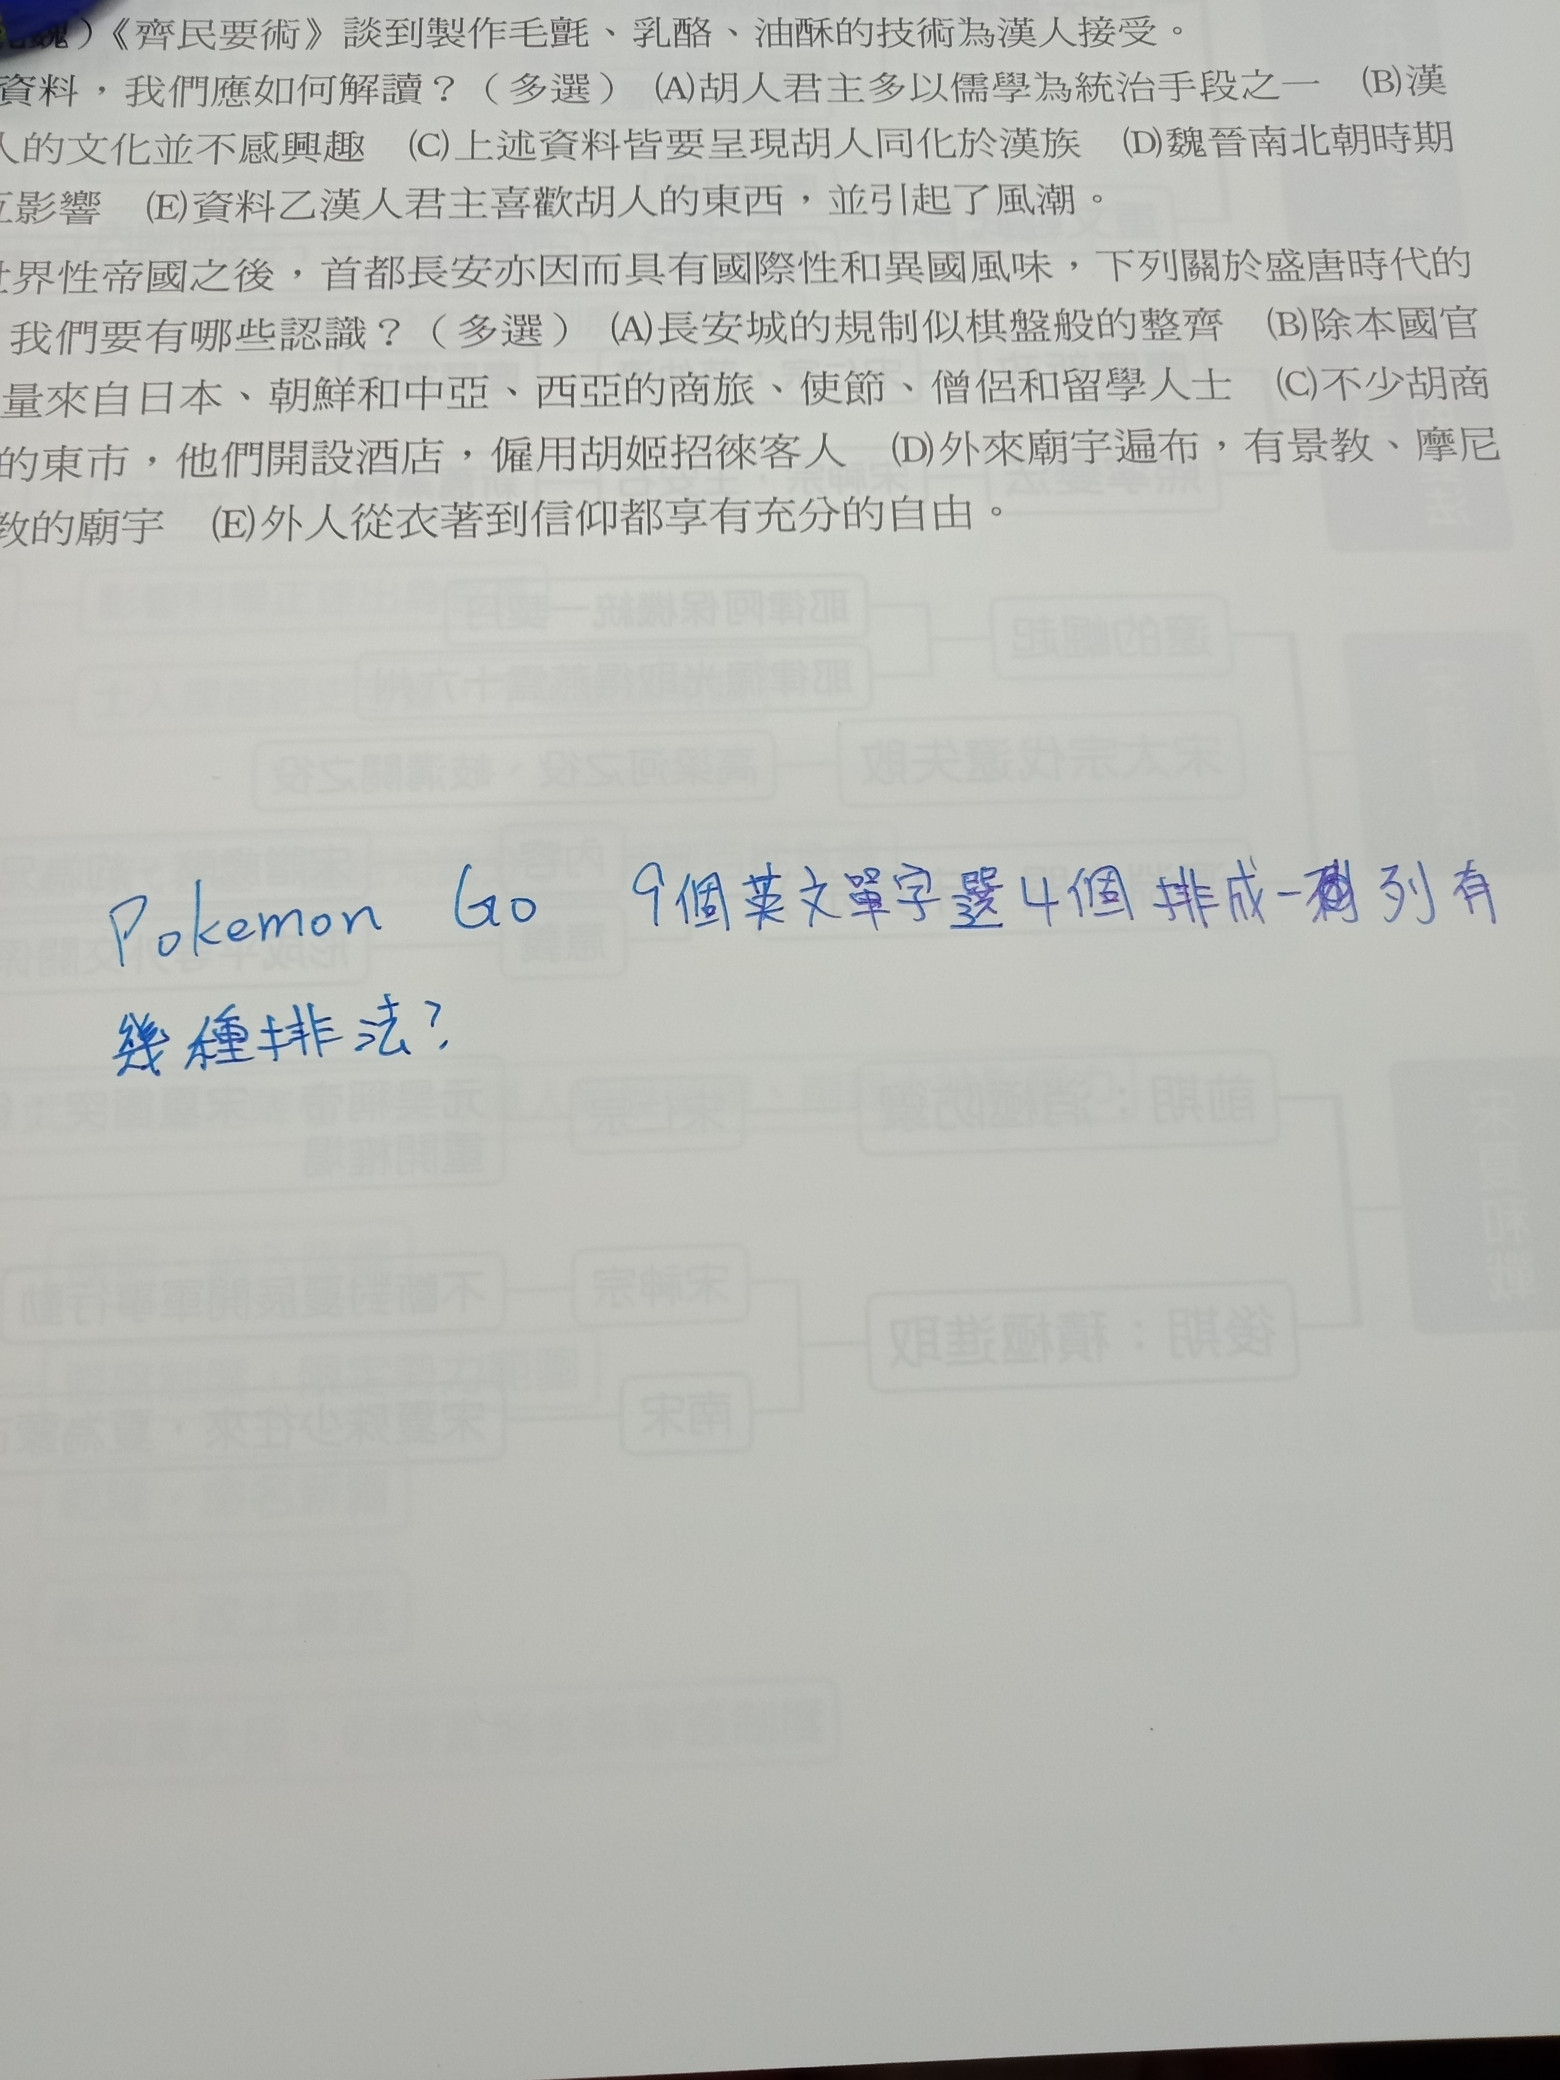 魏)《齊民要術》談到製作毛氈、乳酪、油酥的技術為漢人接受。
資料，我們應如何解讀？（多選） (A)胡人君主多以儒學為統治手段之一 (B)漢
人的文化並不感興趣 (C)上述資料皆要呈現胡人同化於漢族 (D)魏晉南北朝時期
互影響 (E)資料乙漢人君主喜歡胡人的東西，並引起了風潮。
世界性帝國之後，首都長安亦因而具有國際性和異國風味，下列關於盛唐時代的
我們要有哪些認識？（多選） (A)長安城的規制似棋盤般的整齊 (B)除本國官
量來自日本、朝鮮和中亞、西亞的商旅、使節、僧侶和留學人士 (C)不少胡商
的東市，他們開設酒店，僱用胡姬招徠客人 (D)外來廟宇遍布，有景教、摩尼
教的廟宇 (E)外人從衣著到信仰都享有充分的自由。
Pokemon Go 9個英文單字選4個 排成一列有
幾種排法?